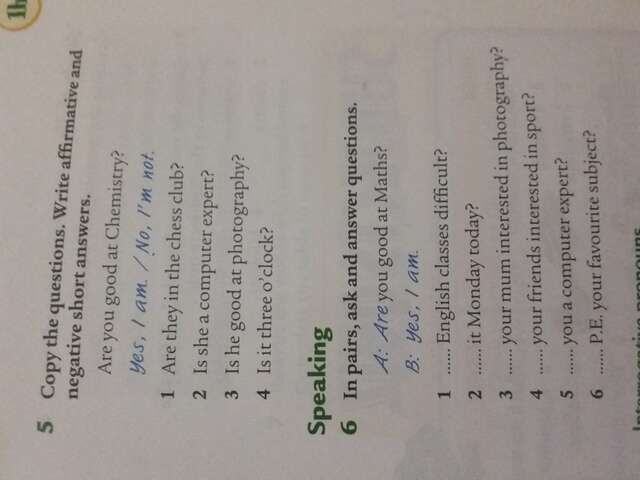 1h
5 Copy the questions. Write affirmative and
negative short answers.
Are you good at Chemistry?
Yes, I am. / No, I'm not.
1 Are they in the chess club?
2 Is she a computer expert?
3 Is he good at photography?
4 Is it three o'clock?
Speaking
6 In pairs, ask and answer questions.
A: Are you good at Maths?
B: Yes, I am.
1 ...... English classes difficult?
2 ...... it Monday today?
3 ...... your mum interested in photography?
4 ...... your friends interested in sport?
5 ...... you a computer expert?
6 ...... P.E. your favourite subject?
Interrogative pronouns